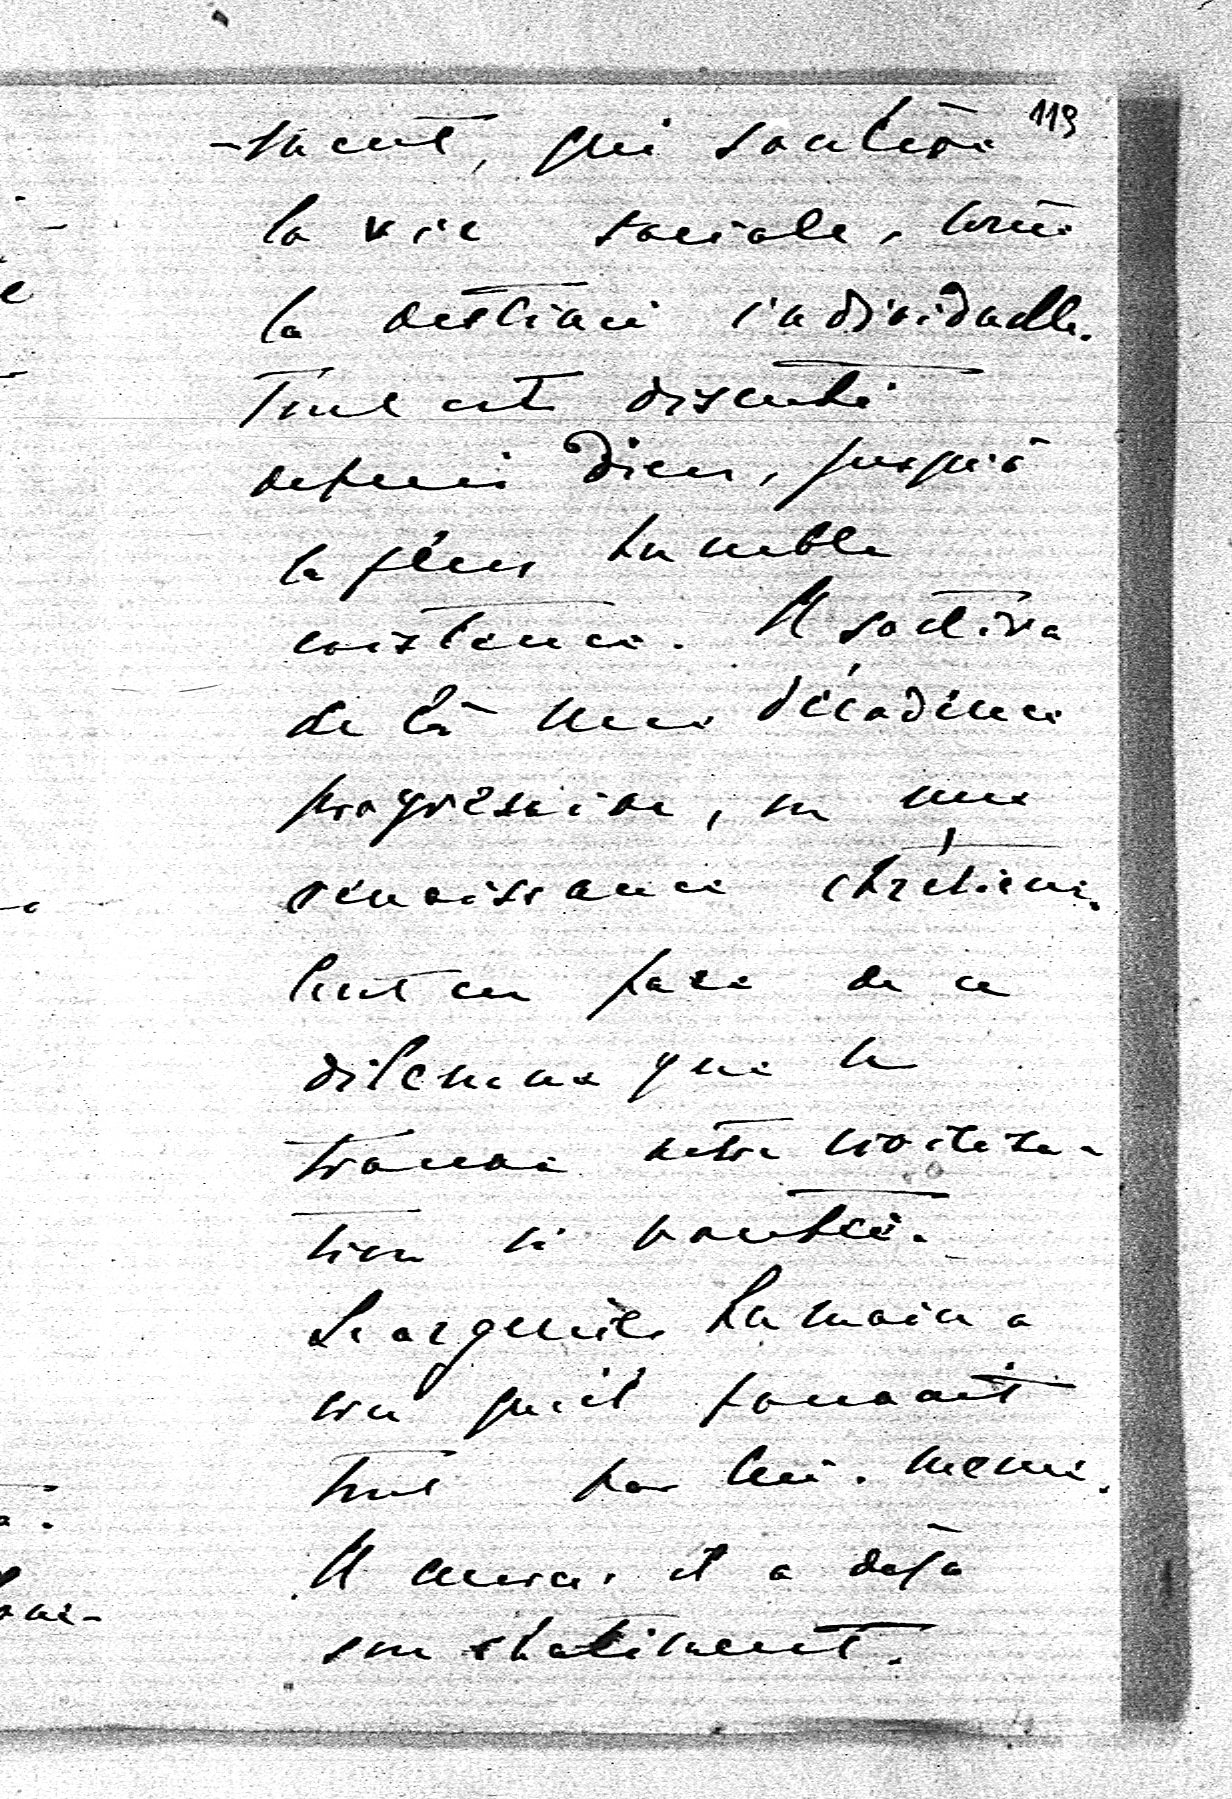 119
-ment, qui soulève
la vie sociale, toute
la destinée individuelle.
Tout est discuté
depuis Dieu, jusqu'à
la plus humble
existence. Il sortira
de là une décadence
progressive, ou une
renaissance chrétienne.
C'est en face de ce
dilemme que se
trouve notre civilisa-
tion si vantée.
L'orgueil humain a
cru qu'il pouvait
tout par lui-même.
Il aura, il a déjà
son châtiment.